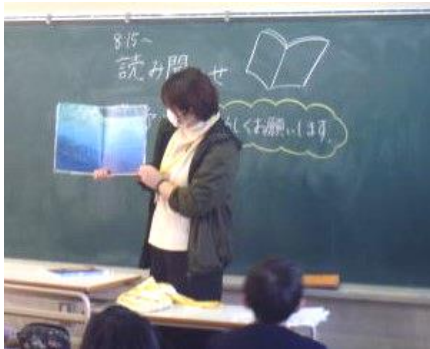 8:15〜
読み聞せ
しくお願いします。